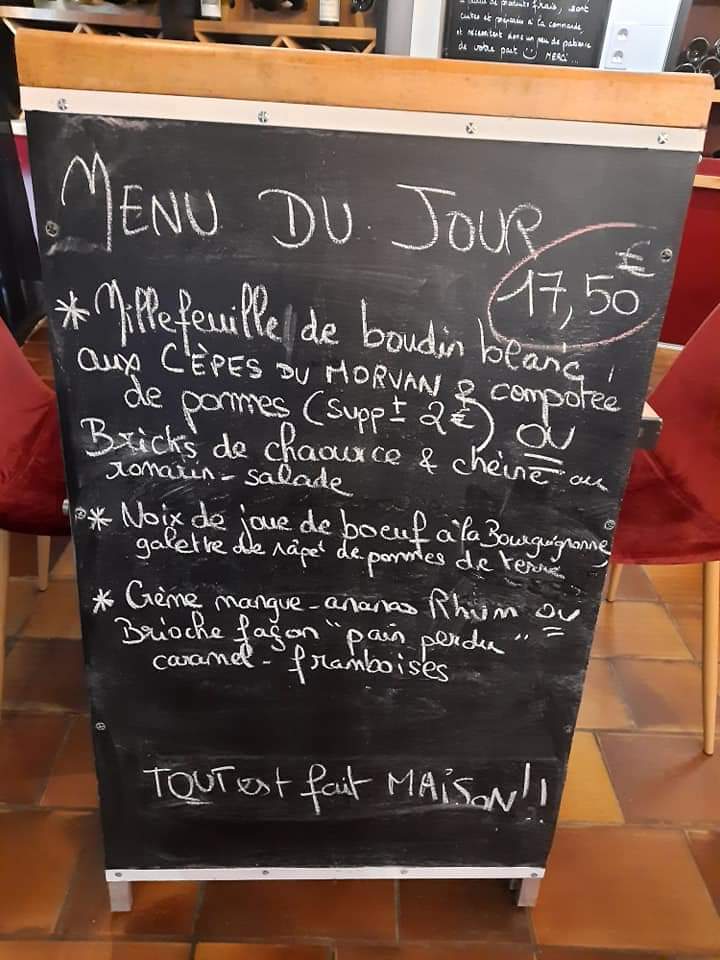 à base de produits frais, sont
cuites et préparés à la commande,
et nécessitent donc un peu de patience
de votre part MERCI...
MENU DU JOUR
17,50 €
* Millefeuille de boudin blanc
aux CÈPES DU MORVAN & compotée
de pommes (Suppt 2€) OU
Bricks de chaource & chèvre au
romarin - salade
* Noix de joue de boeuf à la Bourguignonne,
galette de râpé de pommes de terre
* Crème mangue - ananas Rhum ou
Brioche façon "pain perdu"
caramel - framboises
TOUT est fait MAISON!!